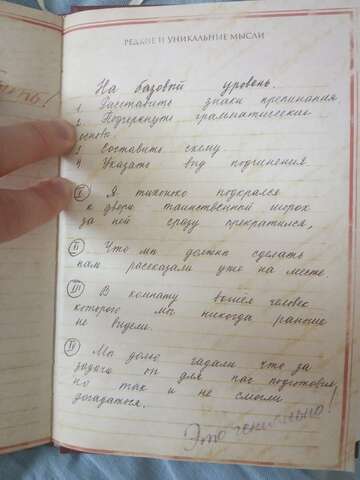 РЕДКИЕ И УНИКАЛЬНЫЕ МЫСЛИ
На базовый уровень.
1. Расставить знаки препинания
2. Подчеркнуть грамматические
основы.
3 Составить схему.
4 Указать вид подчинения
I Я тихонько подкрался
к двери таинственный шорох
за ней сразу прекратился,
II Что мы должны сделать
нам рассказали уже на месте
III В комнату вошел человек
которого мы никогда раньше
не видели.
IV Мы долго гадали что за
задачу он для нас подготовил
но так и не смогли
догадаться.
Это гениально!